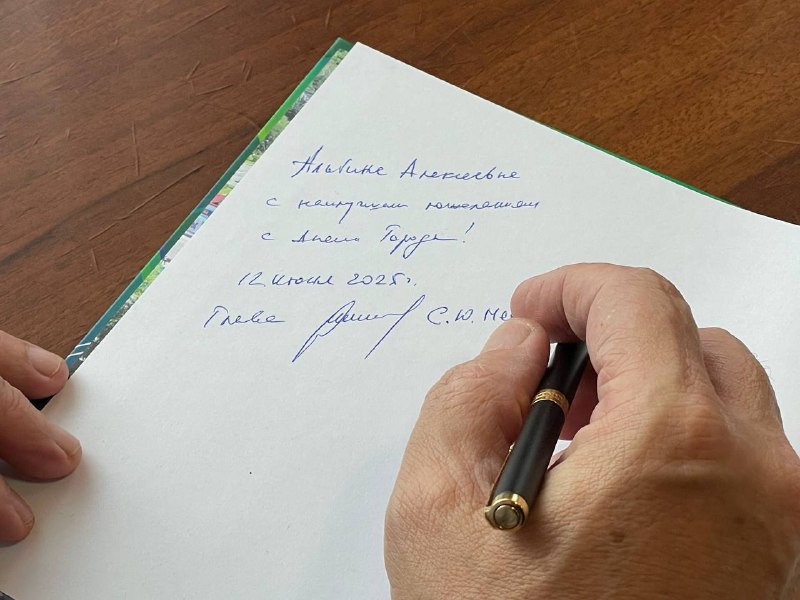 Альбине Алексеевне
с наилучшими пожеланиями
с Днем Города!
12 июня 2025г.
Глава С.Ю. Ме